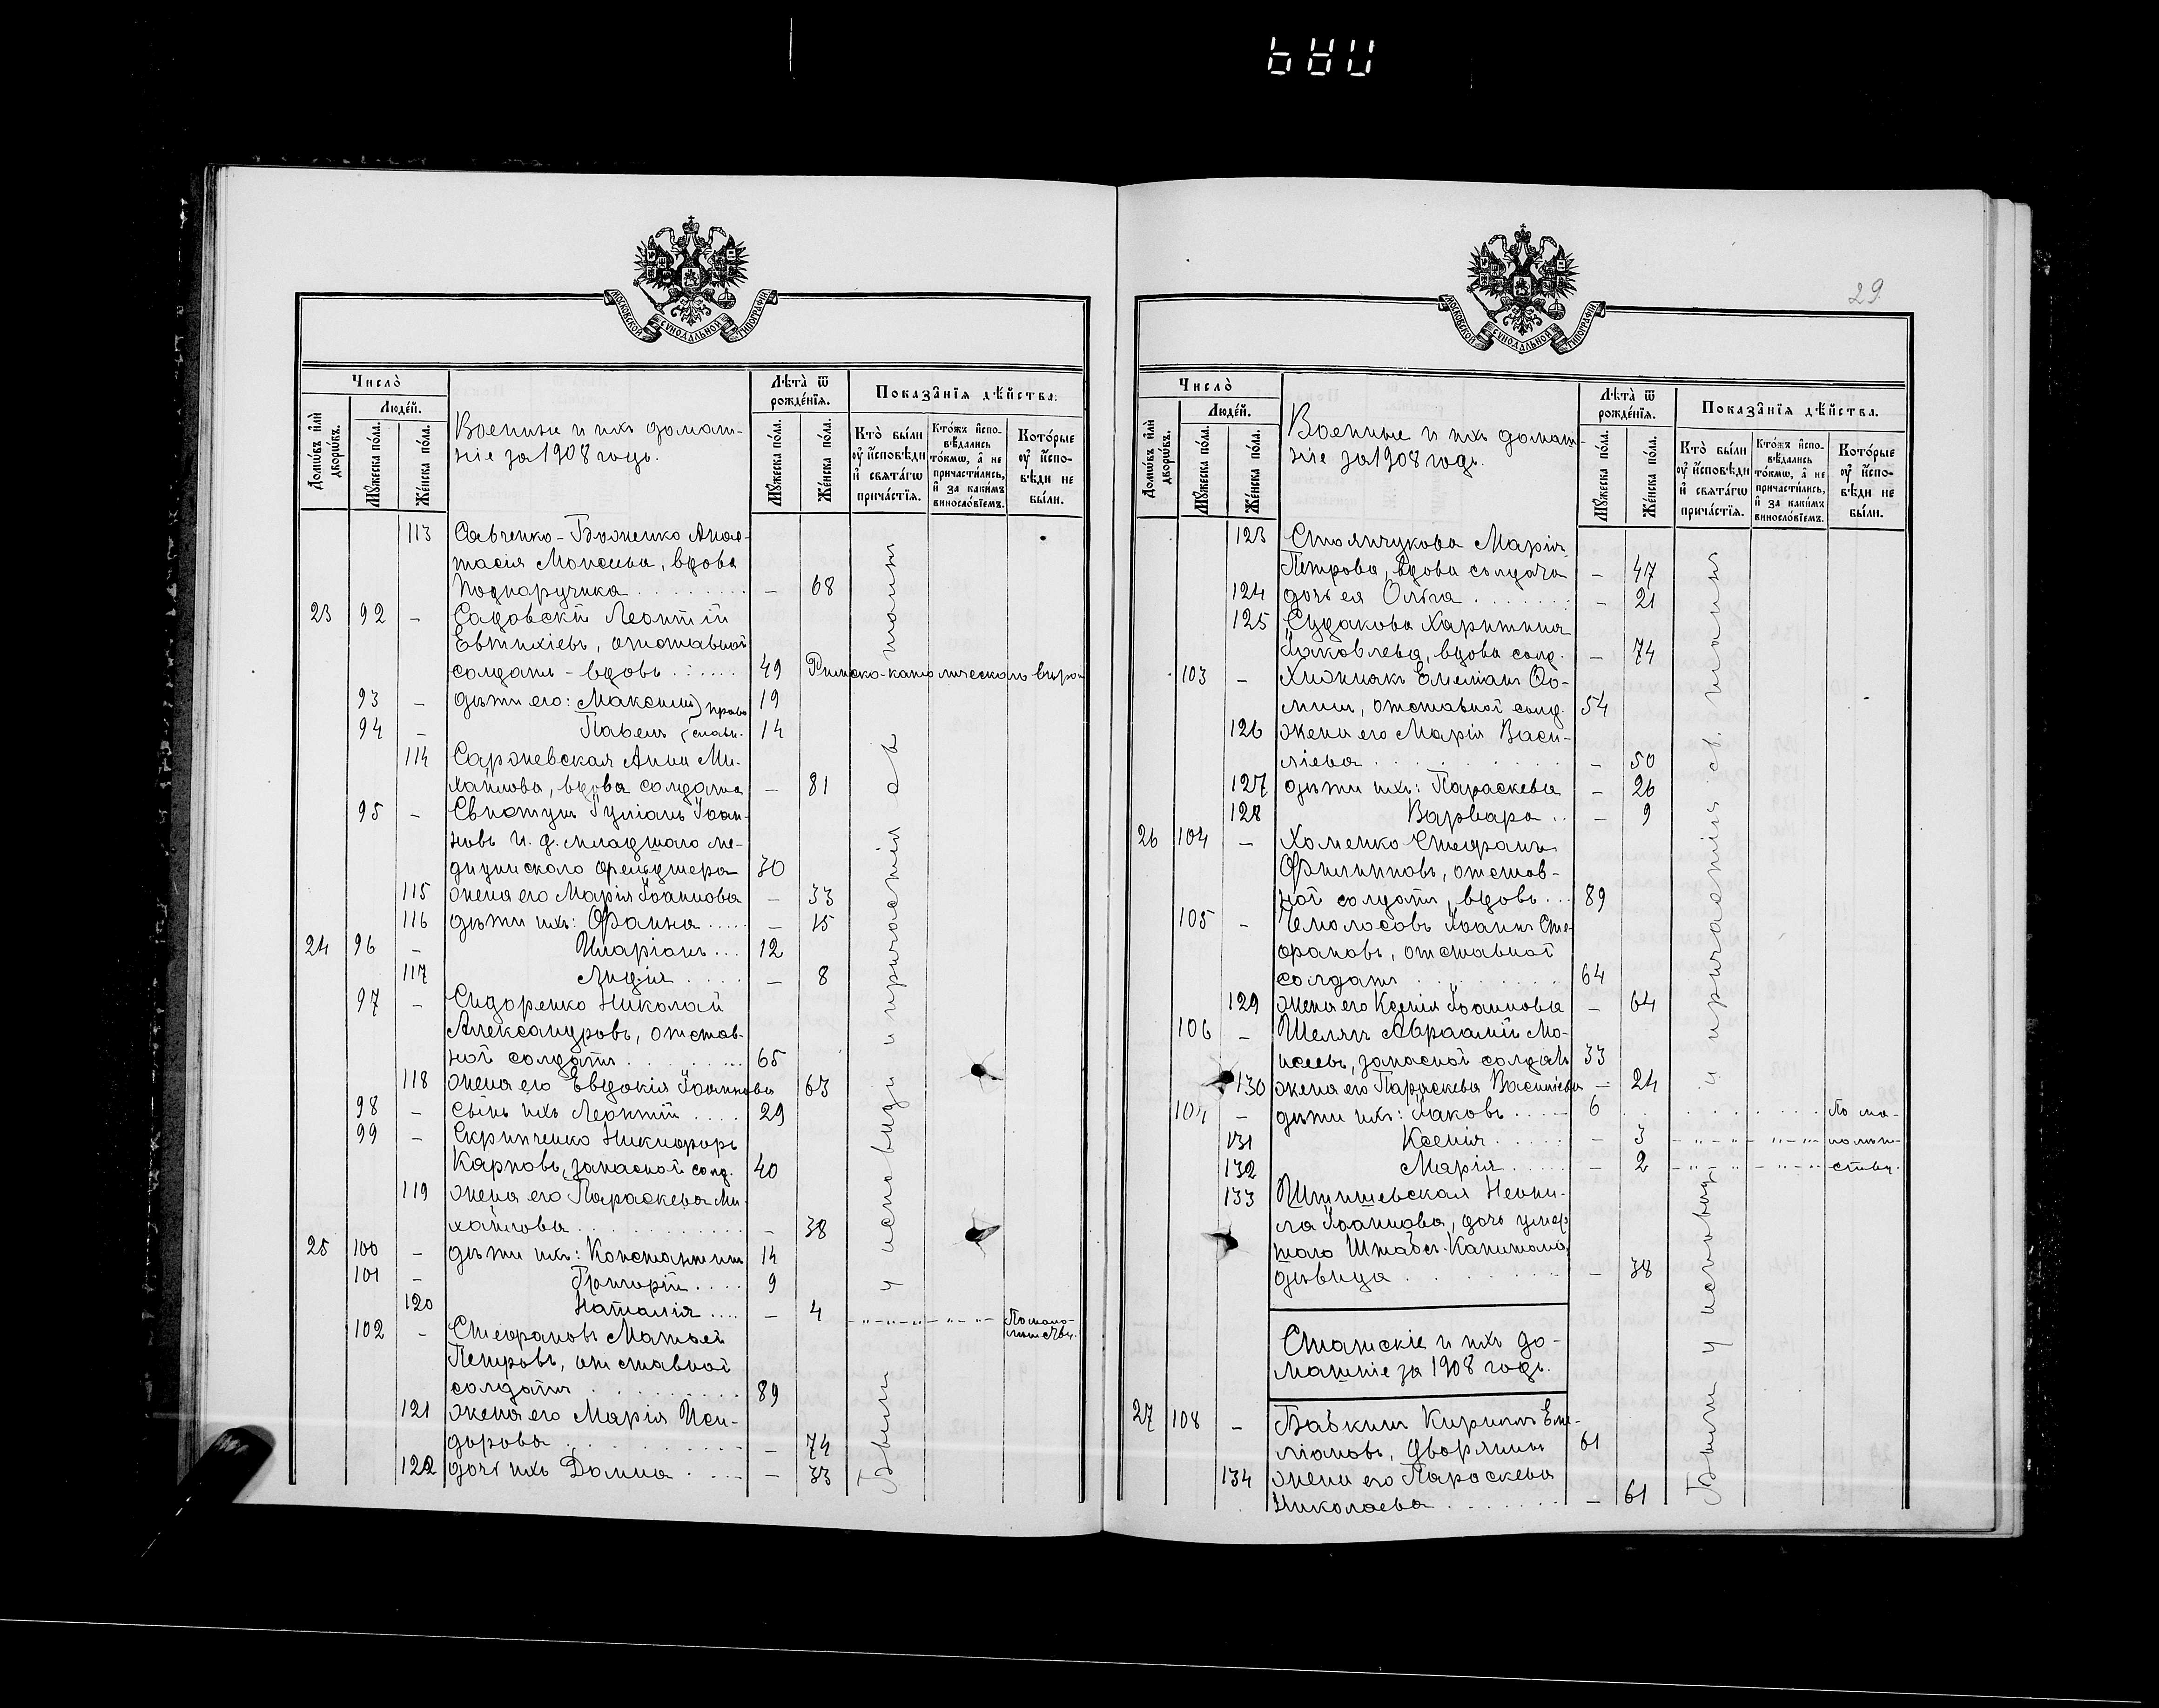 МОСКОВСКОЙ СУНОДАЛЬНОЙ ТИПОГРАФІИ
Число̀
Домѡ́въ и҆лѝ дворѡ́въ.
Люде́й.
Мꙋ́жеска по́ла.
Же́нска по́ла.
Военные и ихъ домаш-
ніе за 1908 годъ.
Лѣ́та ѿ рожде́нїѧ.
Мꙋ́жеска по́ла.
Же́нска по́ла.
Показа̑нїѧ дѣ́йства.
Кто̀ бы́ли ᲂу҆ и҆́сповѣди и҆ свѧта́гѡ прича́стїѧ.
Кто́жъ и҆спо-вѣ́дались то́кмѡ, а҆ не причасти́лись, и҆ за каки́мъ виносло́вїемъ.
Кото́рые ᲂу҆ и҆́спо-вѣди не бы́ли.
113 Савченко-Боженко Анас-
тасія Моисеева, вдова
Подпаручика - 68
23 92 - Садовскій Леонтій
Евтихіевъ, отставной
солдатъ - вдовъ 49 Римско-католическаго вѣроис
93 - дѣти его: Максимъ) право 19
94 - Павелъ (славн. 14
114 Саржевская Анна Ми-
хайлова, вдова солдата - 81
95 - Свистунъ Іуліанъ Іоан-
новъ и. д. младшаго ме-
дицинскаго фельдшера 30
115 жена его Марія Іоаннова - 33
116 дѣти ихъ: Фаина - 15
24 96 - Иларіонъ 12
117 Лидія - 8
97 - Сидоренко Николай
Александровъ, отстав-
ной солдатъ 65
118 жена его Евдокія Іоаннова 63
98 - сынъ ихъ Леонтій 29
99 - Скрипченко Никифоръ
Карповъ, запасной солд. 40
119 жена его Параскева Ми-
хайлова - 38
25 100 - дѣти ихъ: Константинъ 14
101 - Григорій 9
120 Наталія - 4 По мало-
лѣтству.
102 - Стефановъ Матѳей
Петровъ, отставной
солдатъ 89
121 жена его Марія Иси-
дорова - 74
122 дочь ихъ Домна - 33
Были у исповѣди и причастія св. таинъ
29
МОСКОВСКОЙ СУНОДАЛЬНОЙ ТИПОГРАФІИ
Число̀
Домѡ́въ и҆лѝ дворѡ́въ.
Люде́й.
Мꙋ́жеска по́ла.
Же́нска по́ла.
Военные и ихъ домаш-
ніе за 1908 годъ.
Лѣ́та ѿ рожде́нїѧ.
Мꙋ́жеска по́ла.
Же́нска по́ла.
Показа̑нїѧ дѣ́йства.
Кто̀ бы́ли ᲂу҆ и҆́сповѣди и҆ свѧта́гѡ прича́стїѧ.
Кто́жъ и҆спо-вѣ́дались то́кмѡ, а҆ не причасти́лись, и҆ за каки́мъ виносло́вїемъ.
Кото́рые ᲂу҆ и҆́спо-вѣди не бы́ли.
123 Столярчукова Марія
Петрова, вдова солдата - 47
124 дочь ея Ольга - 21
125 Судакова Харитина
Іаковлева, вдова солд. - 74
103 - Хижнякъ Емеліанъ Ѳо-
минъ, отставной солд. 54
126 жена его Марія Васи-
ліева - 50
127 дѣти ихъ: Параскева - 26
128 Варвара - 9
26 104 - Хоменко Стефанъ
Филипповъ, отстав-
ной солдатъ, вдовъ 89
105 - Чемолосовъ Іоаннъ Сте-
фановъ, отставной
солдатъ 64
129 жена его Ксенія Іоаннова - 64
106 - Шелягъ Авраамій Мо-
исеевъ, запасной солдатъ 33
130 жена его Параскева Василіева - 24
107 - дѣти ихъ: Іаковъ 6 По ма-
131 Ксенія - 3 лолѣт-
132 Марія - 2 ству.
133 Неони-
ла Іоаннова, дочь умер
шаго Штабсъ-Капитана,
дѣвица - 38
Статскіе и ихъ до-
машніе за 1908 годъ.
27 108 - Бабкинъ Кириллъ Еме-
ліановъ, дворянинъ 61
134 жена его Параскева
Николаева - 61
Были у исповѣди и причастія св. таинъ